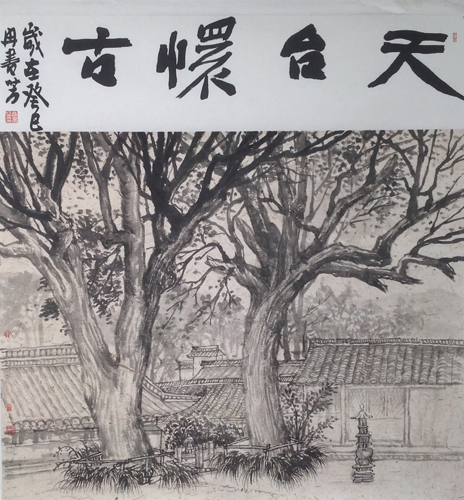 天台懷古
歲在癸巳
書芳